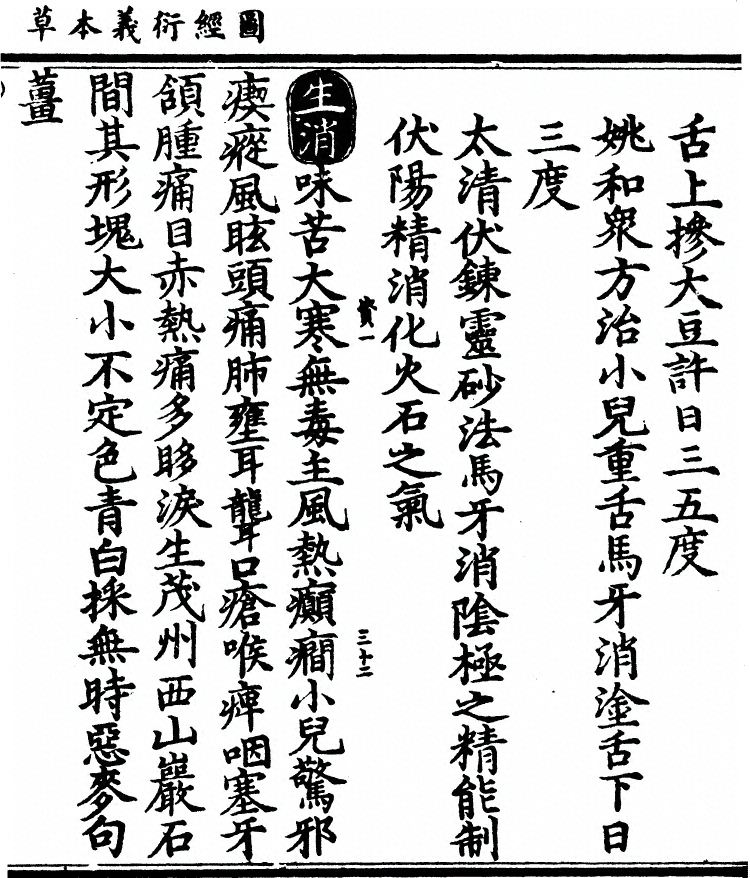 圖經衍義本草
舌上摻大豆許日三五度
姚和衆方治小兒重舌馬牙消塗舌下日
三度
太清伏鍊靈砂法馬牙消陰極之精能制
伏陽精消化火石之氣
生消味苦大寒無毒主風熱癲癇小兒驚邪
瘈瘲風眩頭痛肺壅耳聾口瘡喉痺咽塞牙
頷腫痛目赤熱痛多眵淚生茂州西山巖石
間其形塊大小不定色青白採無時惡麥句
薑
資一
三十二